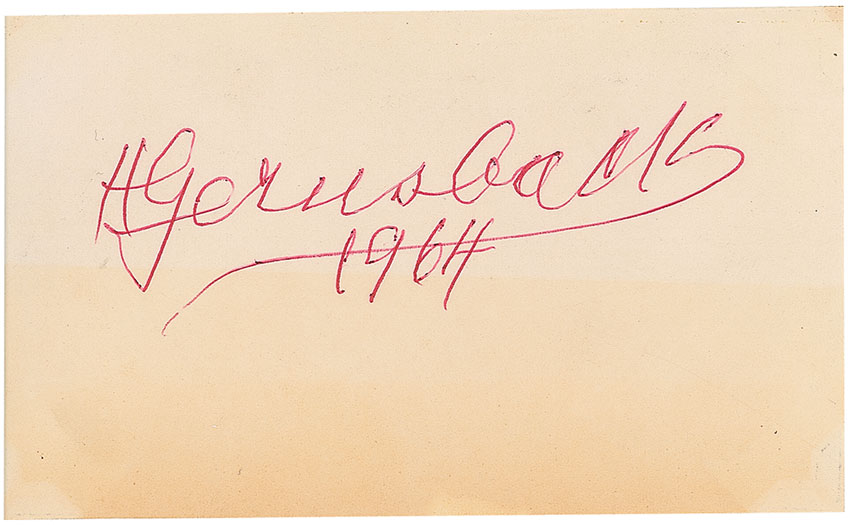 HGernsback
1964